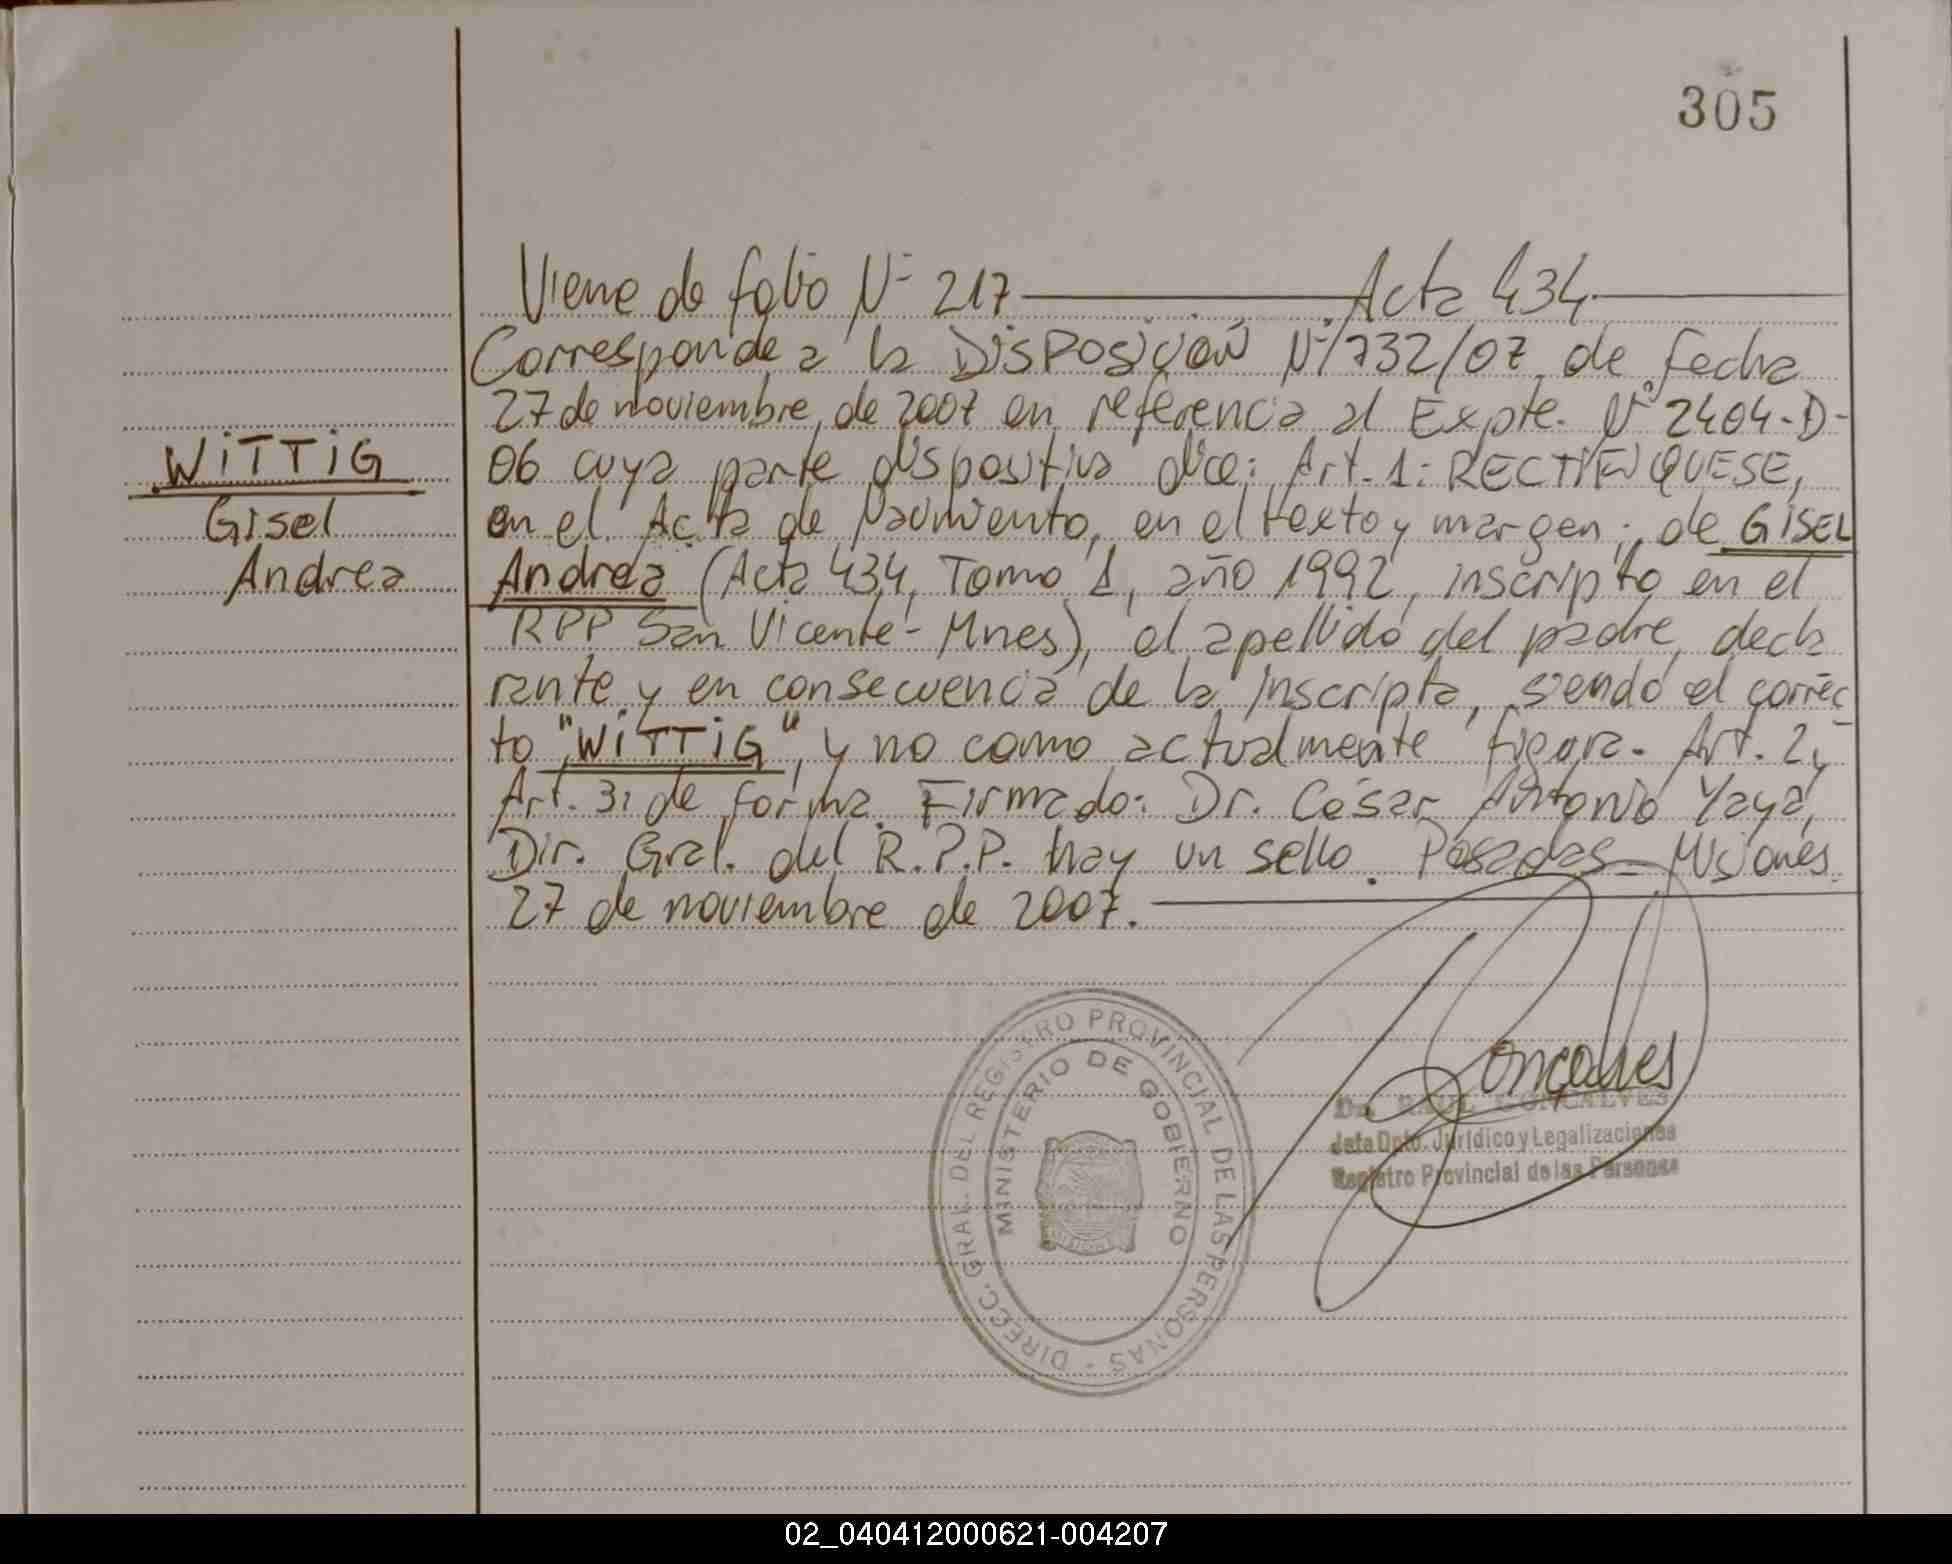 305
Viene de folio Nº 217 Acta 434
Corresponde a la DISPOSICIÓN Nº 1732/07 de fecha
27 de noviembre de 2007 en referencia al Expte. Nº 2404-D-
06 cuya parte dispositiva dice: Art. 1: RECTIFIQUESE,
en el Acta de Nacimiento, en el texto y margen; de GISEL
Andrea (Acta 434, Tomo 1, año 1992, inscripto en el
RPP San Vicente - Mnes), el apellido del padre, decla
rante y en consecuencia de la inscripta, siendo el correc
to "WiTTiG", y no como actualmente figura. Art. 2 y
Art. 3: de forma. Firmado: Dr. César Antonio Yaya,
Dir. Gral. del R.P.P. hay un sello. Posadas - Misiones
27 de noviembre de 2007.
WiTTiG
Gisel
Andrea
DIRECC. GRAL. DEL REGISTRO PROVINCIAL DE LAS PERSONAS -
MINISTERIO DE GOBIERNO
MISIONES
Gonçalves
Dr. RAUL GONÇALVES
Jefe Dpto. Jurídico y Legalizaciones
Registro Provincial de las Personas
02_040412000621-004207